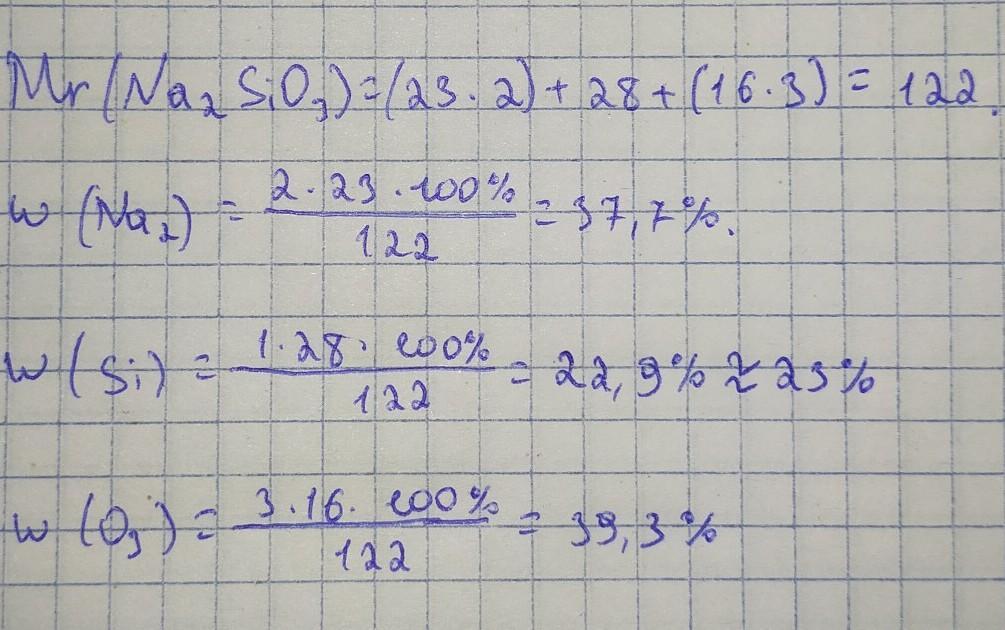 Mr(Na₂SiO₃)=(23·2)+28+(16·3)=122.
w(Na₂)=2·23·100%/122=37,7%.
w(Si)=1·28·100%/122=22,9%≈23%
w(O₃)=3·16·100%/122=39,3%